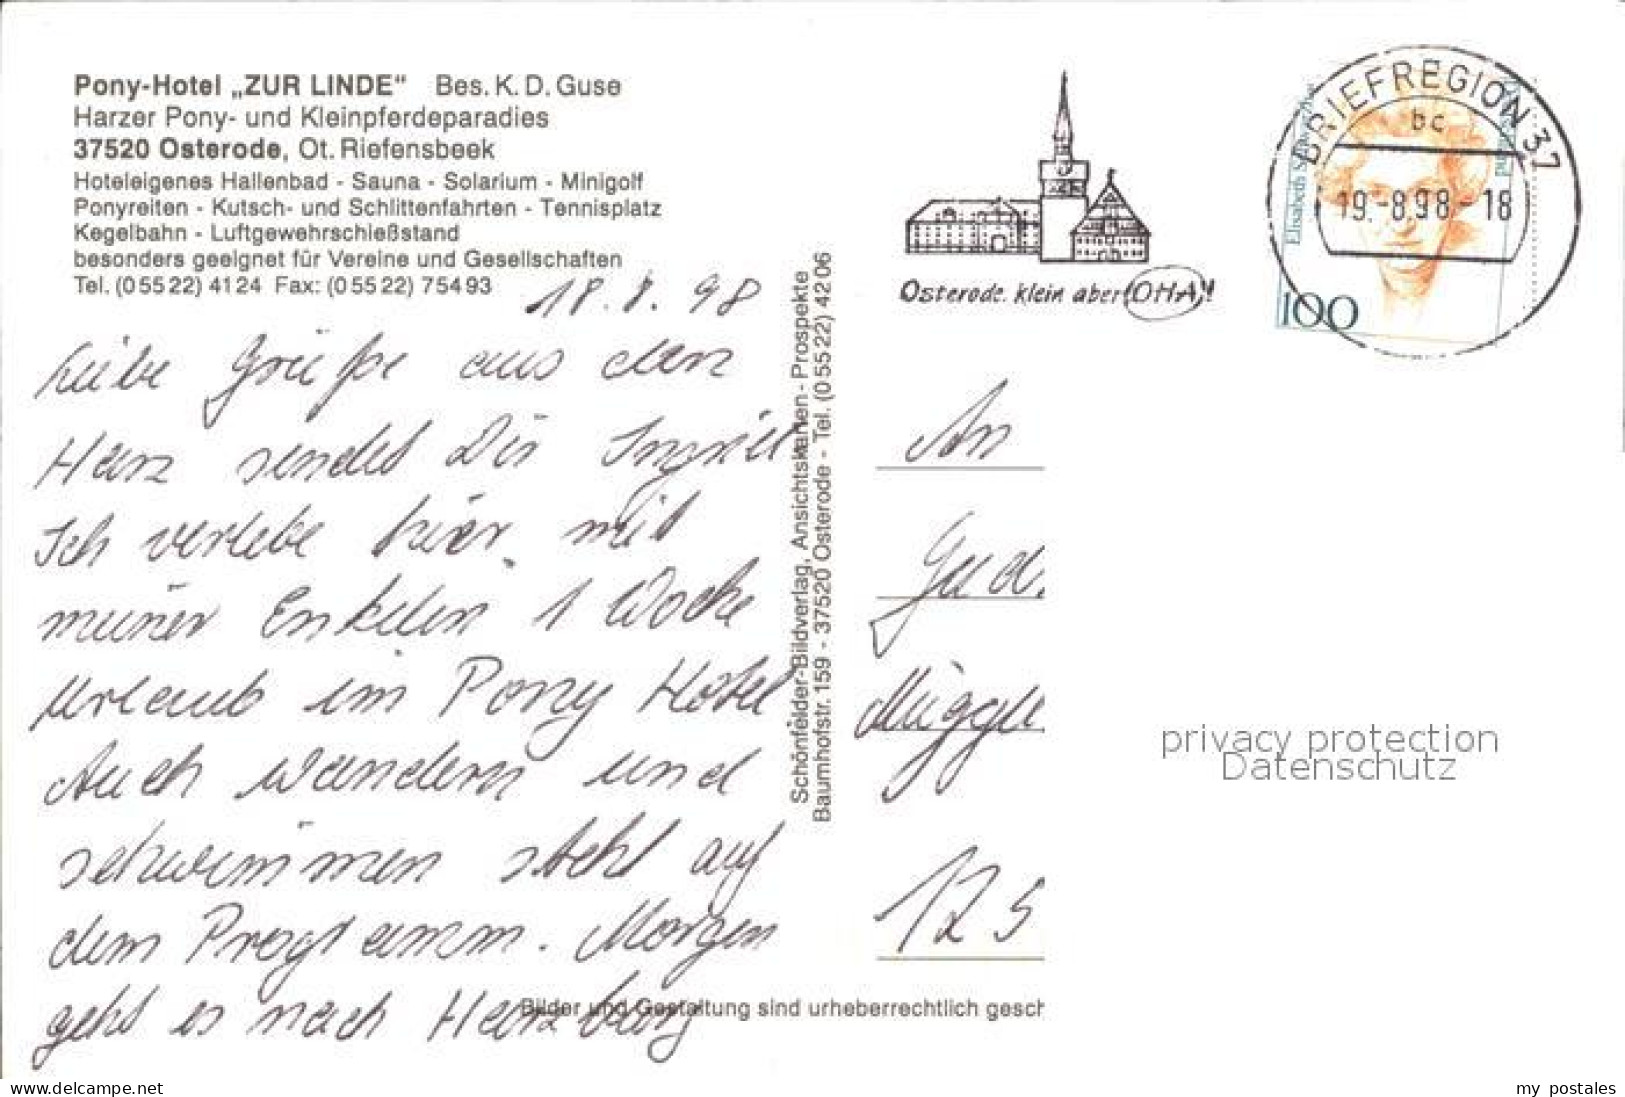 Pony-Hotel „ZUR LINDE“ Bes. K. D. Guse
Harzer Pony- und Kleinpferdeparadies
37520 Osterode, Ot. Riefensbeek
Hoteleigenes Hallenbad - Sauna - Solarium - Minigolf
Ponyreiten - Kutsch- und Schlittenfahrten - Tennisplatz
Kegelbahn - Luftgewehrschießstand
besonders geeignet für Vereine und Gesellschaften
Tel. (0 55 22) 41 24 Fax: (0 55 22) 7 54 93
18. 8. 98
Liebe Grüße aus den
Harz sendet Dir Ingrid
Ich verlebe hier mit
meiner Enkelin 1 Woche
Urlaub im Pony Hotel
Auch wandern und
schwimmen steht auf
dem Programm. Morgen
geht es nach Harzburg
Schönfelder-Bildverlag, Ansichtskarten - Prospekte
Baumhofstr. 159 - 37520 Osterode - Tel. (0 55 22) 42 06
Osterode. klein aber (OHA)!
BRIEFREGION 37
bc
19.-8.98-18
Elisabeth
100
An
Gud
Müggel
125
privacy protection
Datenschutz
Bilder und Gestaltung sind urheberrechtlich gesch
www.delcampe.net
my_postales